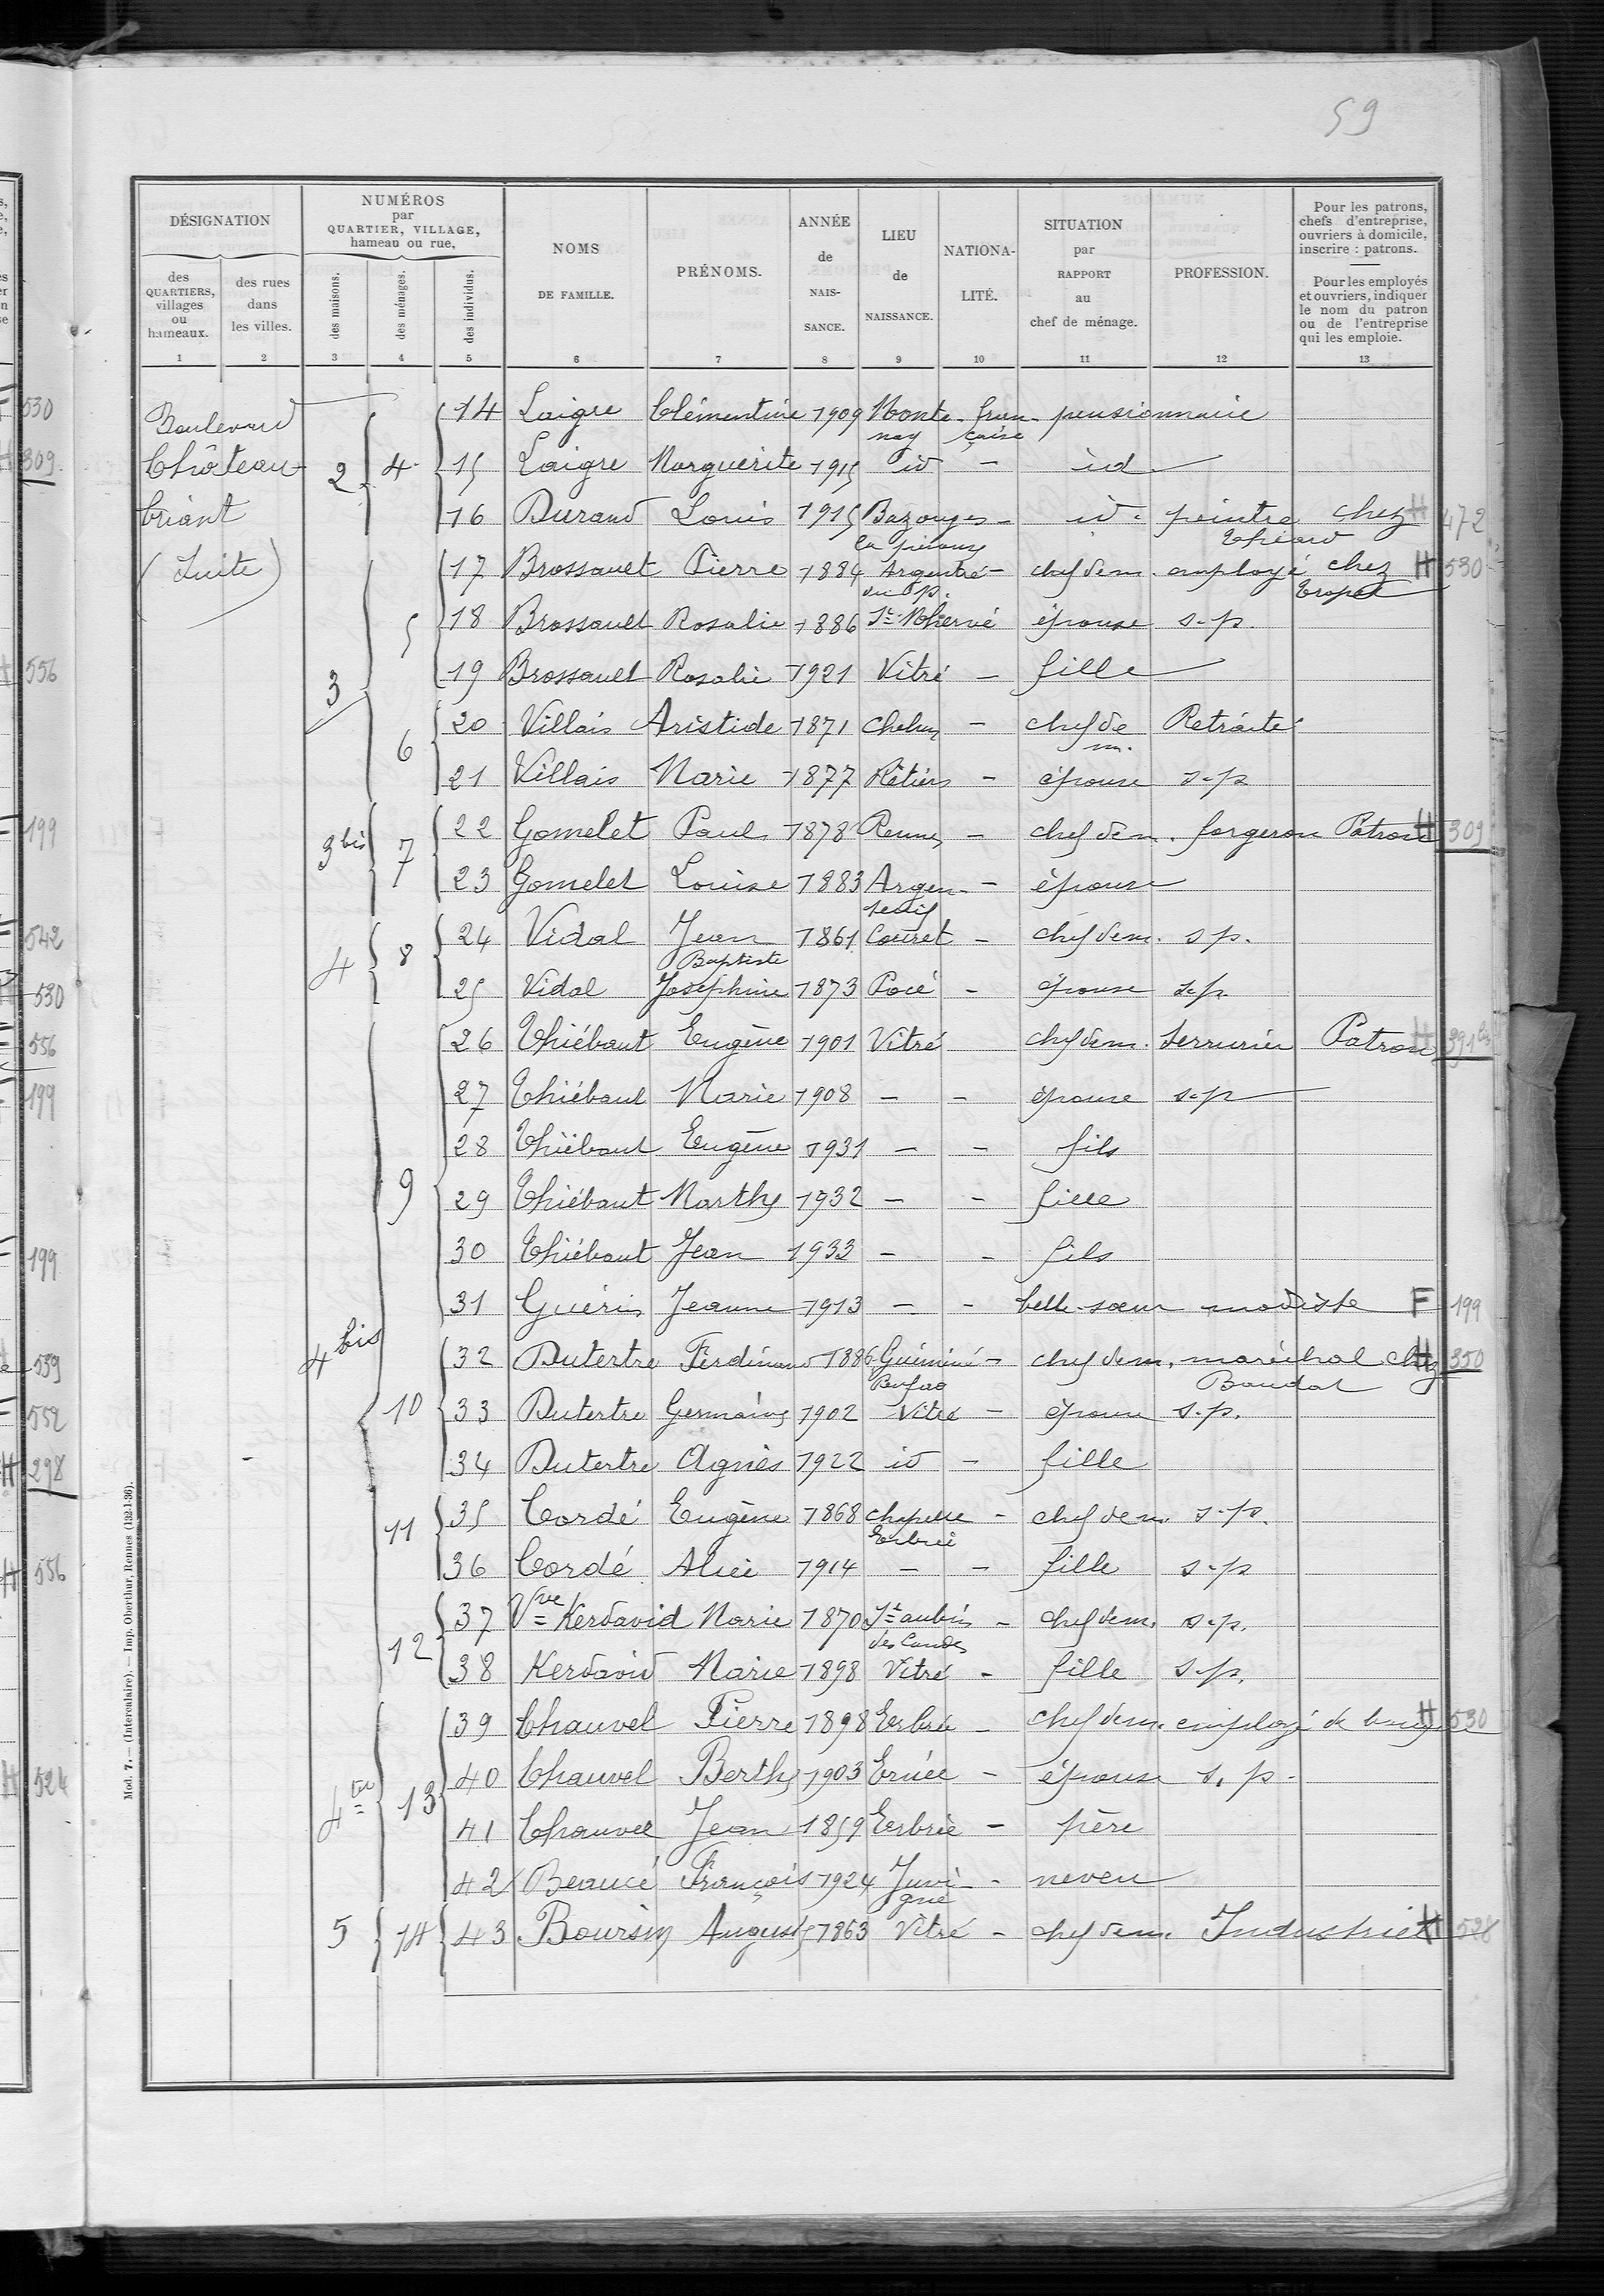 59
DÉSIGNATION
NUMÉROS
par
QUARTIER, VILLAGE,
hameau ou rue,
des
QUARTIERS,
villages
ou
hameaux.
des rues
dans
les villes.
des maisons.
des ménages.
des individus.
NOMS
DE FAMILLE.
PRÉNOMS.
ANNÉE
de
NAIS-
SANCE.
LIEU
de
NAISSANCE.
NATIONA-
LITÉ.
SITUATION
par
RAPPORT
au
chef de ménage.
PROFESSION.
Pour les patrons,
chefs d'entreprise,
ouvriers à domicile,
inscrire : patrons.
Pour les employés
et ouvriers, indiquer
le nom du patron
ou de l'entreprise
qui les emploie.
1 2 3 4 5 6 7 8 9 10 11 12 13
Boulevard
Château-
briant
(Suite)
14 Laigre Clémentine 1909 Monte- fran- pensionnaire
nay çaise
2 4 15 Laigre Marguerite 1915 id - id
16 Durand Louis 1915 Bazouges - id. peintre chez H 472
17 Brossault Pierre 1884 Argentré - chef de m. employé chez H 530
du p.
5 18 Brossault Rosalie 1886 St M'hervé épouse s.p.
3 19 Brossault Rosalie 1921 Vitré - fille
6 20 Villais Aristide 1871 Chelun - chef de Retraité
m.
21 Villais Marie 1877 Rétiers - épouse s.p
3bis 7 22 Gomelet Paul 1878 Rennes - chef de m. forgeron Patron H 309
23 Gomelet Louise 1883 Argen- - épouse
teuil
4 8 24 Vidal Jean 1861 Couret - chef de m. s.p.
Baptiste
25 Vidal Joséphine 1873 Pocé - épouse s.p.
26 Thiébaut Eugène 1901 Vitré chef de m. Serrurier Patron H 391bis
27 Thiébaut Marie 1908 - - épouse s.p
28 Thiébaut Eugène 1931 - - fils
9 29 Thiébaut Marthe 1932 - - fille
30 Thiébaut Jean 1933 - - fils
31 Guérin Jeanne 1913 - - belle-soeur modiste F 199
4bis 32 Dutertre Ferdinand 1886 Guéméné - chef de m. maréchal chez H 350
Penfao
10 33 Dutertre Germaine 1902 Vitré - épouse s.p.
34 Dutertre Agnès 1922 id - fille
11 35 Cordé Eugène 1868 Chapelle - chef de m. s.p.
Erbrée
36 Cordé Alice 1914 - - fille s.p
12 37 Vve Kerdavid Marie 1870 St aubin - chef de m. s.p.
des Landes
38 Kerdavid Marie 1898 Vitré - fille s.p.
39 Chauvel Pierre 1898 Erbrée - chef de m. employé de H 530
4ter 13 40 Chauvel Berthe 1903 Ernée - épouse s.p.
41 Chauvel Jean 1859 Erbrée - père
42 Beaucé François 1924 Juvi- - neveu
gné
5 14 43 Boursin Auguste 1863 Vitré - chef de m. Industriel H 528
Mod. 7. — (Intercalaire). — Imp. Oberthur, Rennes (132-1-36).
530
309
556
199
542
530
556
199
199
539
552
H 298
H 556
H 524